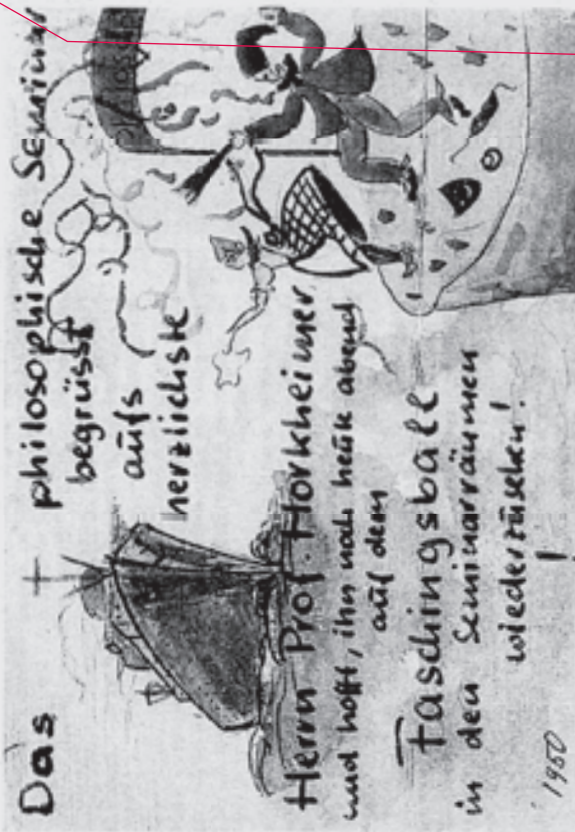 Das
philosophische Seminar
begrüsst
aufs
herzlichste
Herrn Prof. Horkheimer
und hofft, ihn noch heute abend
auf dem
Faschingsball
in den Seminarräumen
wiederzusehen!
1950